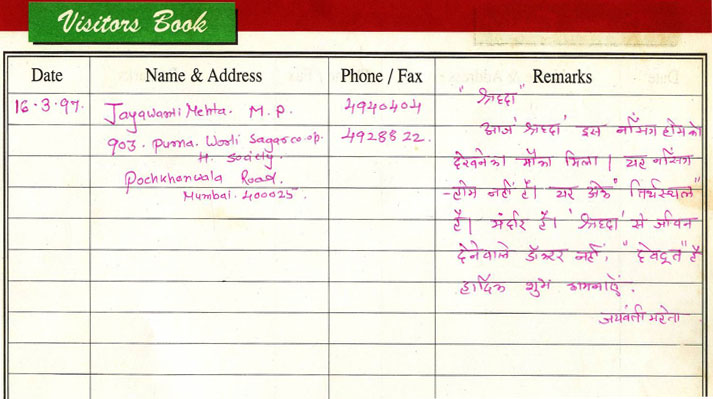 Visitors Book
Date Name & Address Phone / Fax Remarks
16.3.97. Jayawanti Mehta. M.P. 4940404 "श्रध्दा"
903. Purna. Worli Sagar co.op. 4928822. आज 'श्रध्दा' इस नर्सिंग होम को
H. Society. देखनेका मौका मिला। यह नर्सिंग
Pochkhanwala Road. -होम नहीं है। यह अेक "तिर्थस्थल"
Mumbai. 400025. है। मंदीर है। 'श्रध्दा' से जीवन
देनेवाले डॉक्टर नहीं, "देवदूत" है
हार्दिक शुभ कामनाएँ.
जयवंती महेता